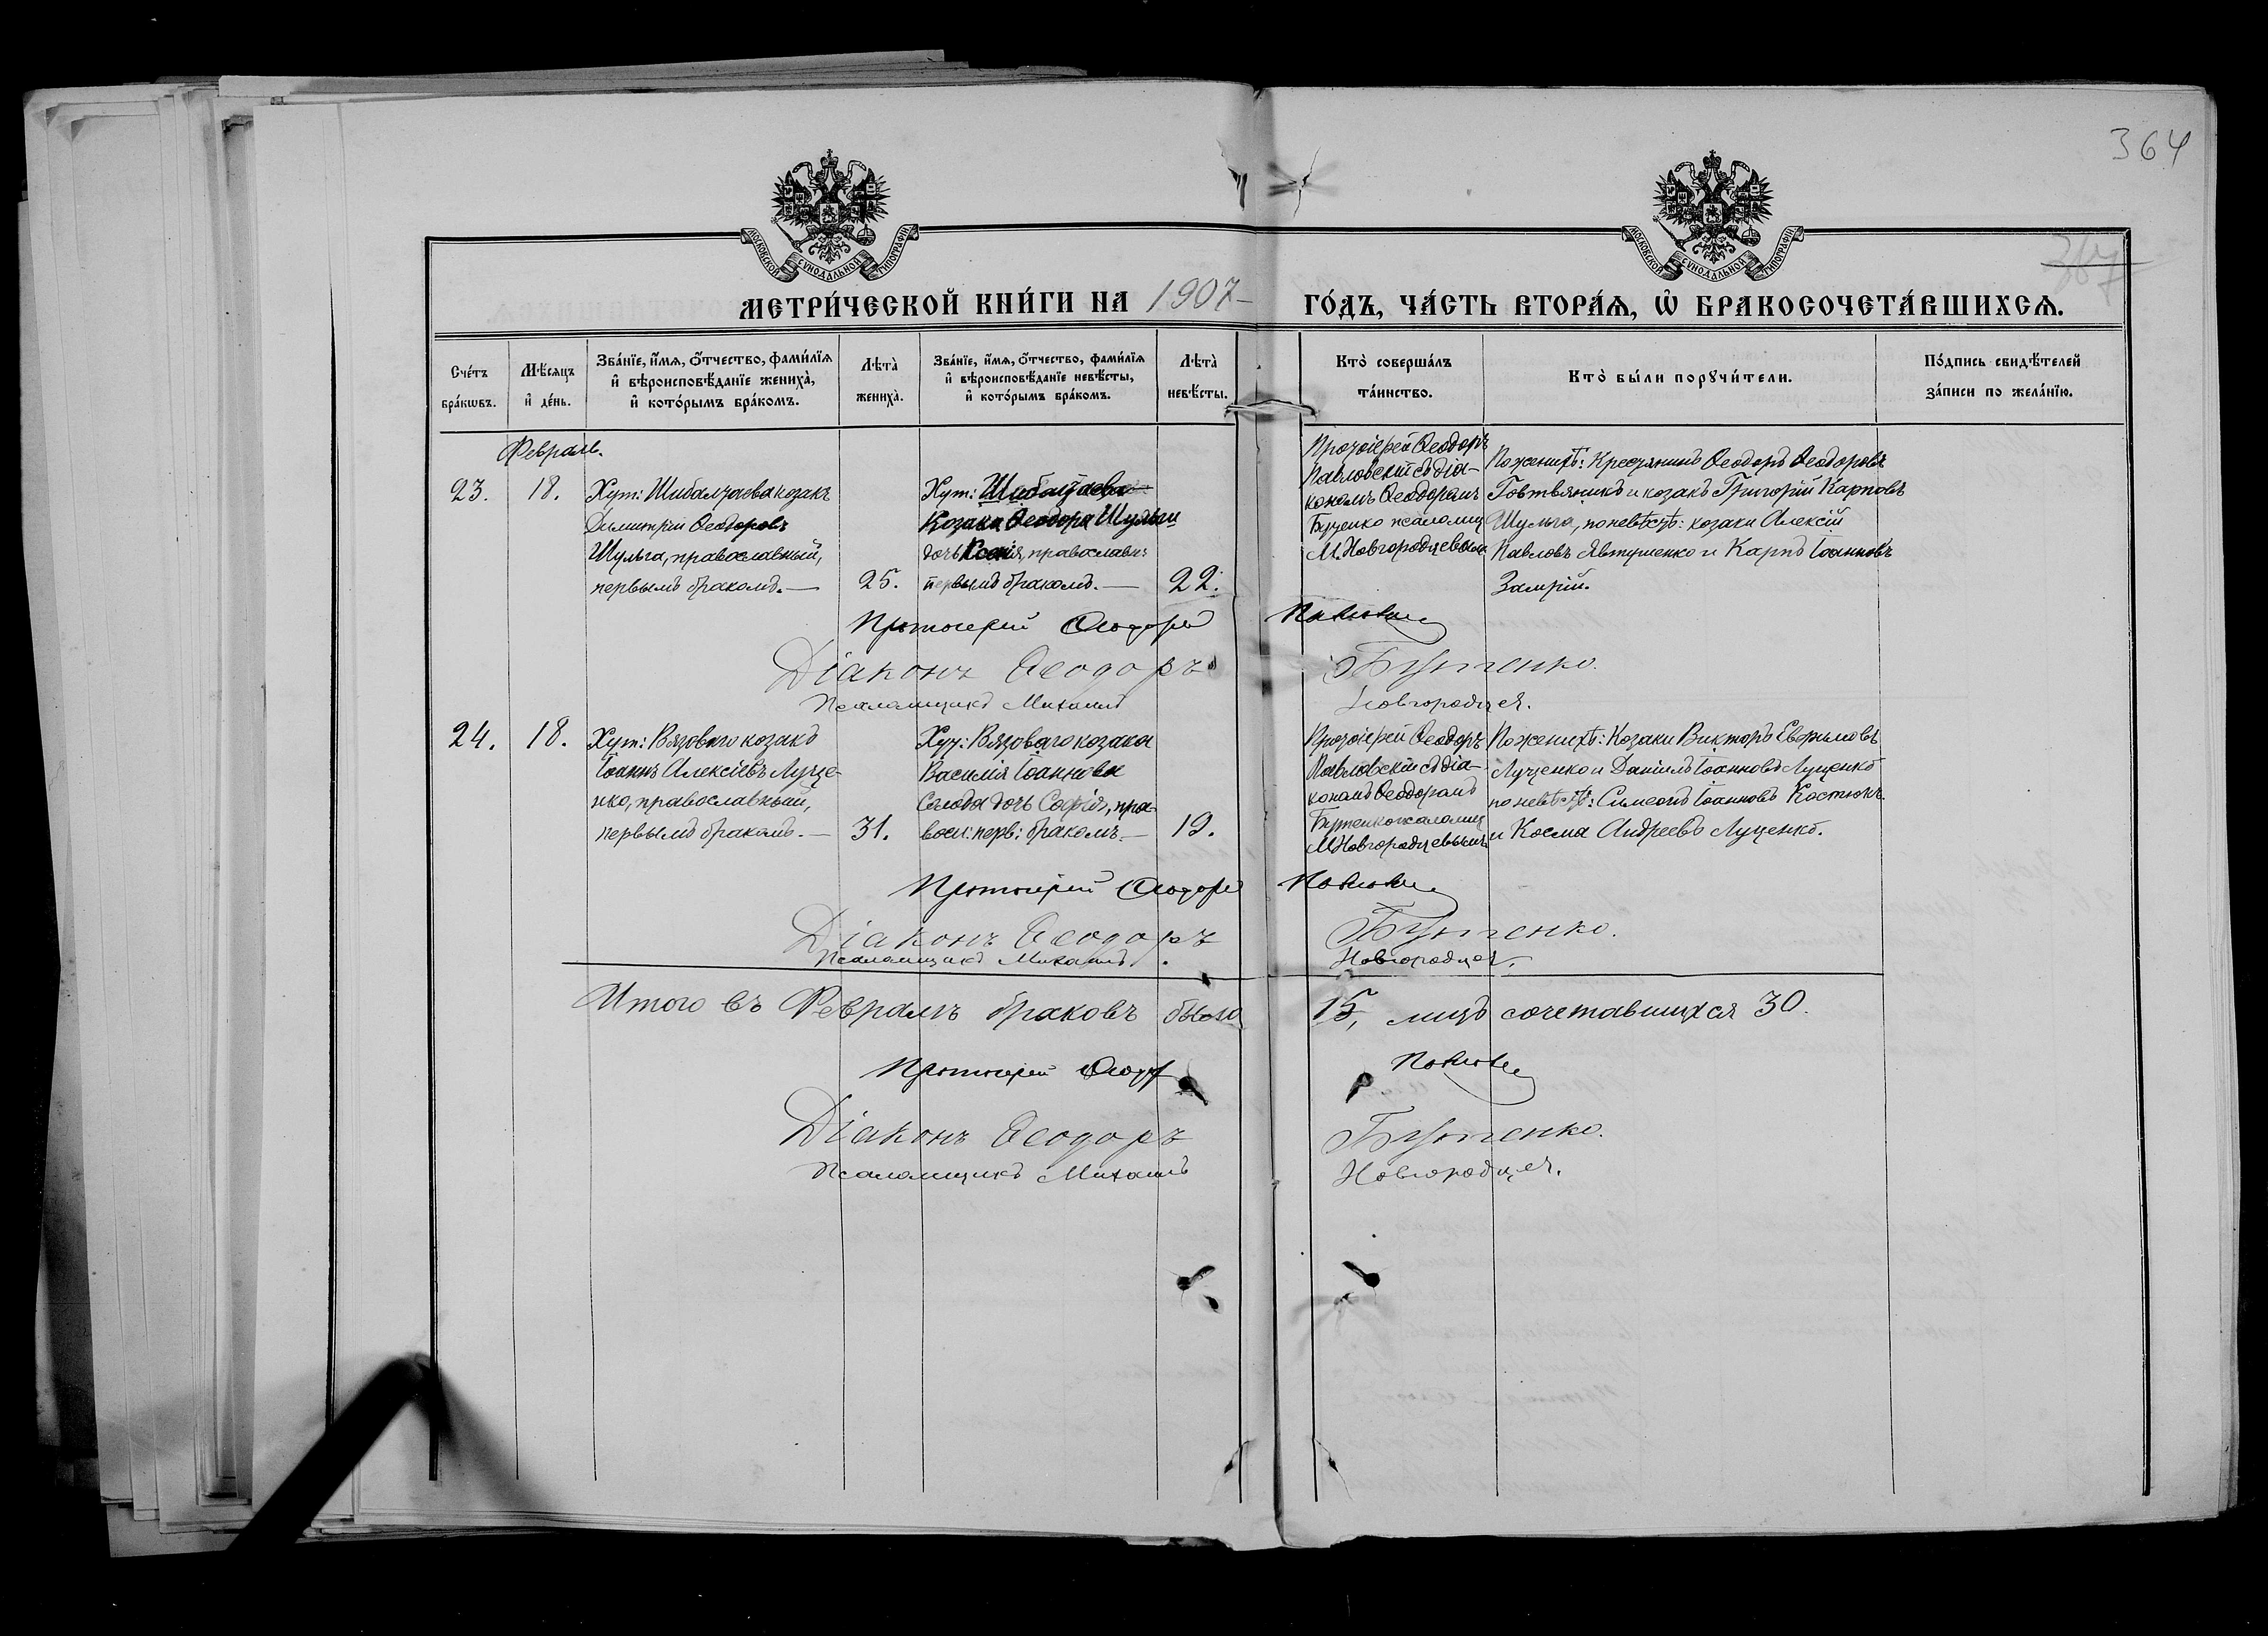 364
367
МОСКОВСКОЙ СѴНОДАЛЬНОЙ ТИПОГРАФІИ
МОСКОВСКОЙ СѴНОДАЛЬНОЙ ТИПОГРАФІИ
МЕТРИ́ЧЕСКОЙ КНИ́ГИ НА 1907 ГО́ДЪ, ЧА́СТЬ ВТОРА́Ѧ, Ѽ БРАКОСОЧЕТА́ВШИХСѦ.
Сче́тъ
бра́кѡвъ.
Мѣ́сяцъ
и҆ де́нь.
Зва́нїе, и҆́мѧ, ѻ҆́тчество, фами́лїѧ
и҆ вѣроисповѣ́данїе жениха̀,
и҆ кото́рымъ бра́комъ.
Лѣта̀
жениха̀.
Зва́нїе, и҆́мѧ, ѻ҆́тчество, фами́лїѧ
и҆ вѣроисповѣ́данїе невѣ́сты,
и҆ кото́рымъ бра́комъ.
Лѣта̀
невѣ́сты.
Кто̀ соверша́лъ
та́инство.
Кто̀ бы́ли порꙋчи́тели.
По́дпись свидѣ́телей
за́писи по жела́нїю.
Февраль.
23.
18.
Хут: Шибалтаева козакъ
Димитрій Ѳеодоровъ
Шульга, православный,
первымъ бракомъ.—
25.
Хут: Шибалтаева
Козака Ѳеодора Шульги
дочь Ксенія, православн:
первымъ бракомъ.—
22.
Протоіерей Ѳеодоръ
Павловскій съ діа-
кономъ Ѳеодоромъ
Бутенко псаломщ
М. Новгородцевымъ
По женихѣ: Крестьянинъ Ѳеодоръ Ѳеодоровъ
Говтвяникъ и козакъ Григорій Карповъ
Шульга, по невѣстѣ: козаки Алексій
Павловъ Явтушенко и Карпъ Іоанновъ
Замрій.
Протоіерей Ѳеодоръ Павловскій
Діаконъ Ѳеодоръ Бутенко.
Псаломщикъ Михаилъ Новгородцев.
24.
18.
Хут: Вязоваго козакъ
Іоаннъ Алексіевъ Луце-
нко, православный,
первымъ бракомъ.—
31.
Хут: Вязоваго козака
Василія Іоаннова
Солода дочь Софія, пра-
восл: перв: бракомъ.—
19.
Протоіерей Ѳеодоръ
Павловскій съ діа-
кономъ Ѳеодоромъ
Бутенко псаломщ
М. Новгородцевымъ
По женихѣ: Козаки Викторъ Евфимовъ
Луценко и Даніилъ Іоанновъ Луценко
по невѣстѣ: Симеонъ Іоанновъ Костюкъ
и Косма Андреевъ Луценко.
Протоіерей Ѳеодоръ Павловскій
Діаконъ Ѳеодоръ Бутенко.
Псаломщикъ Михаилъ Новгородцев.
Итого въ Февралѣ браковъ было 15, лицъ сочетавшихся 30.
Протоіерей Ѳеодоръ Павловскій
Діаконъ Ѳеодоръ Бутенко.
Псаломщикъ Михаилъ Новгородцев.